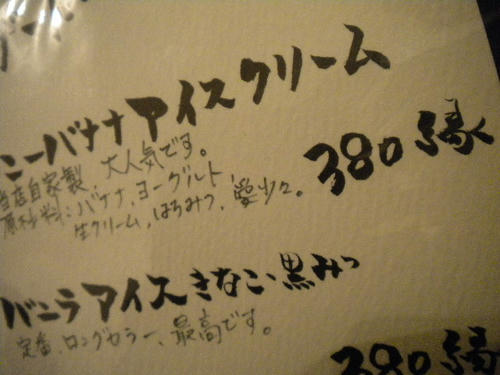 ニーバナナアイスクリーム
当店自家製、大人気です。
原材料:バナナ、ヨーグルト、
生クリーム、はちみつ、愛少々。
380縁
バニラアイスきなこ・黒みつ
定番、ロングセラー、最高です。
380縁